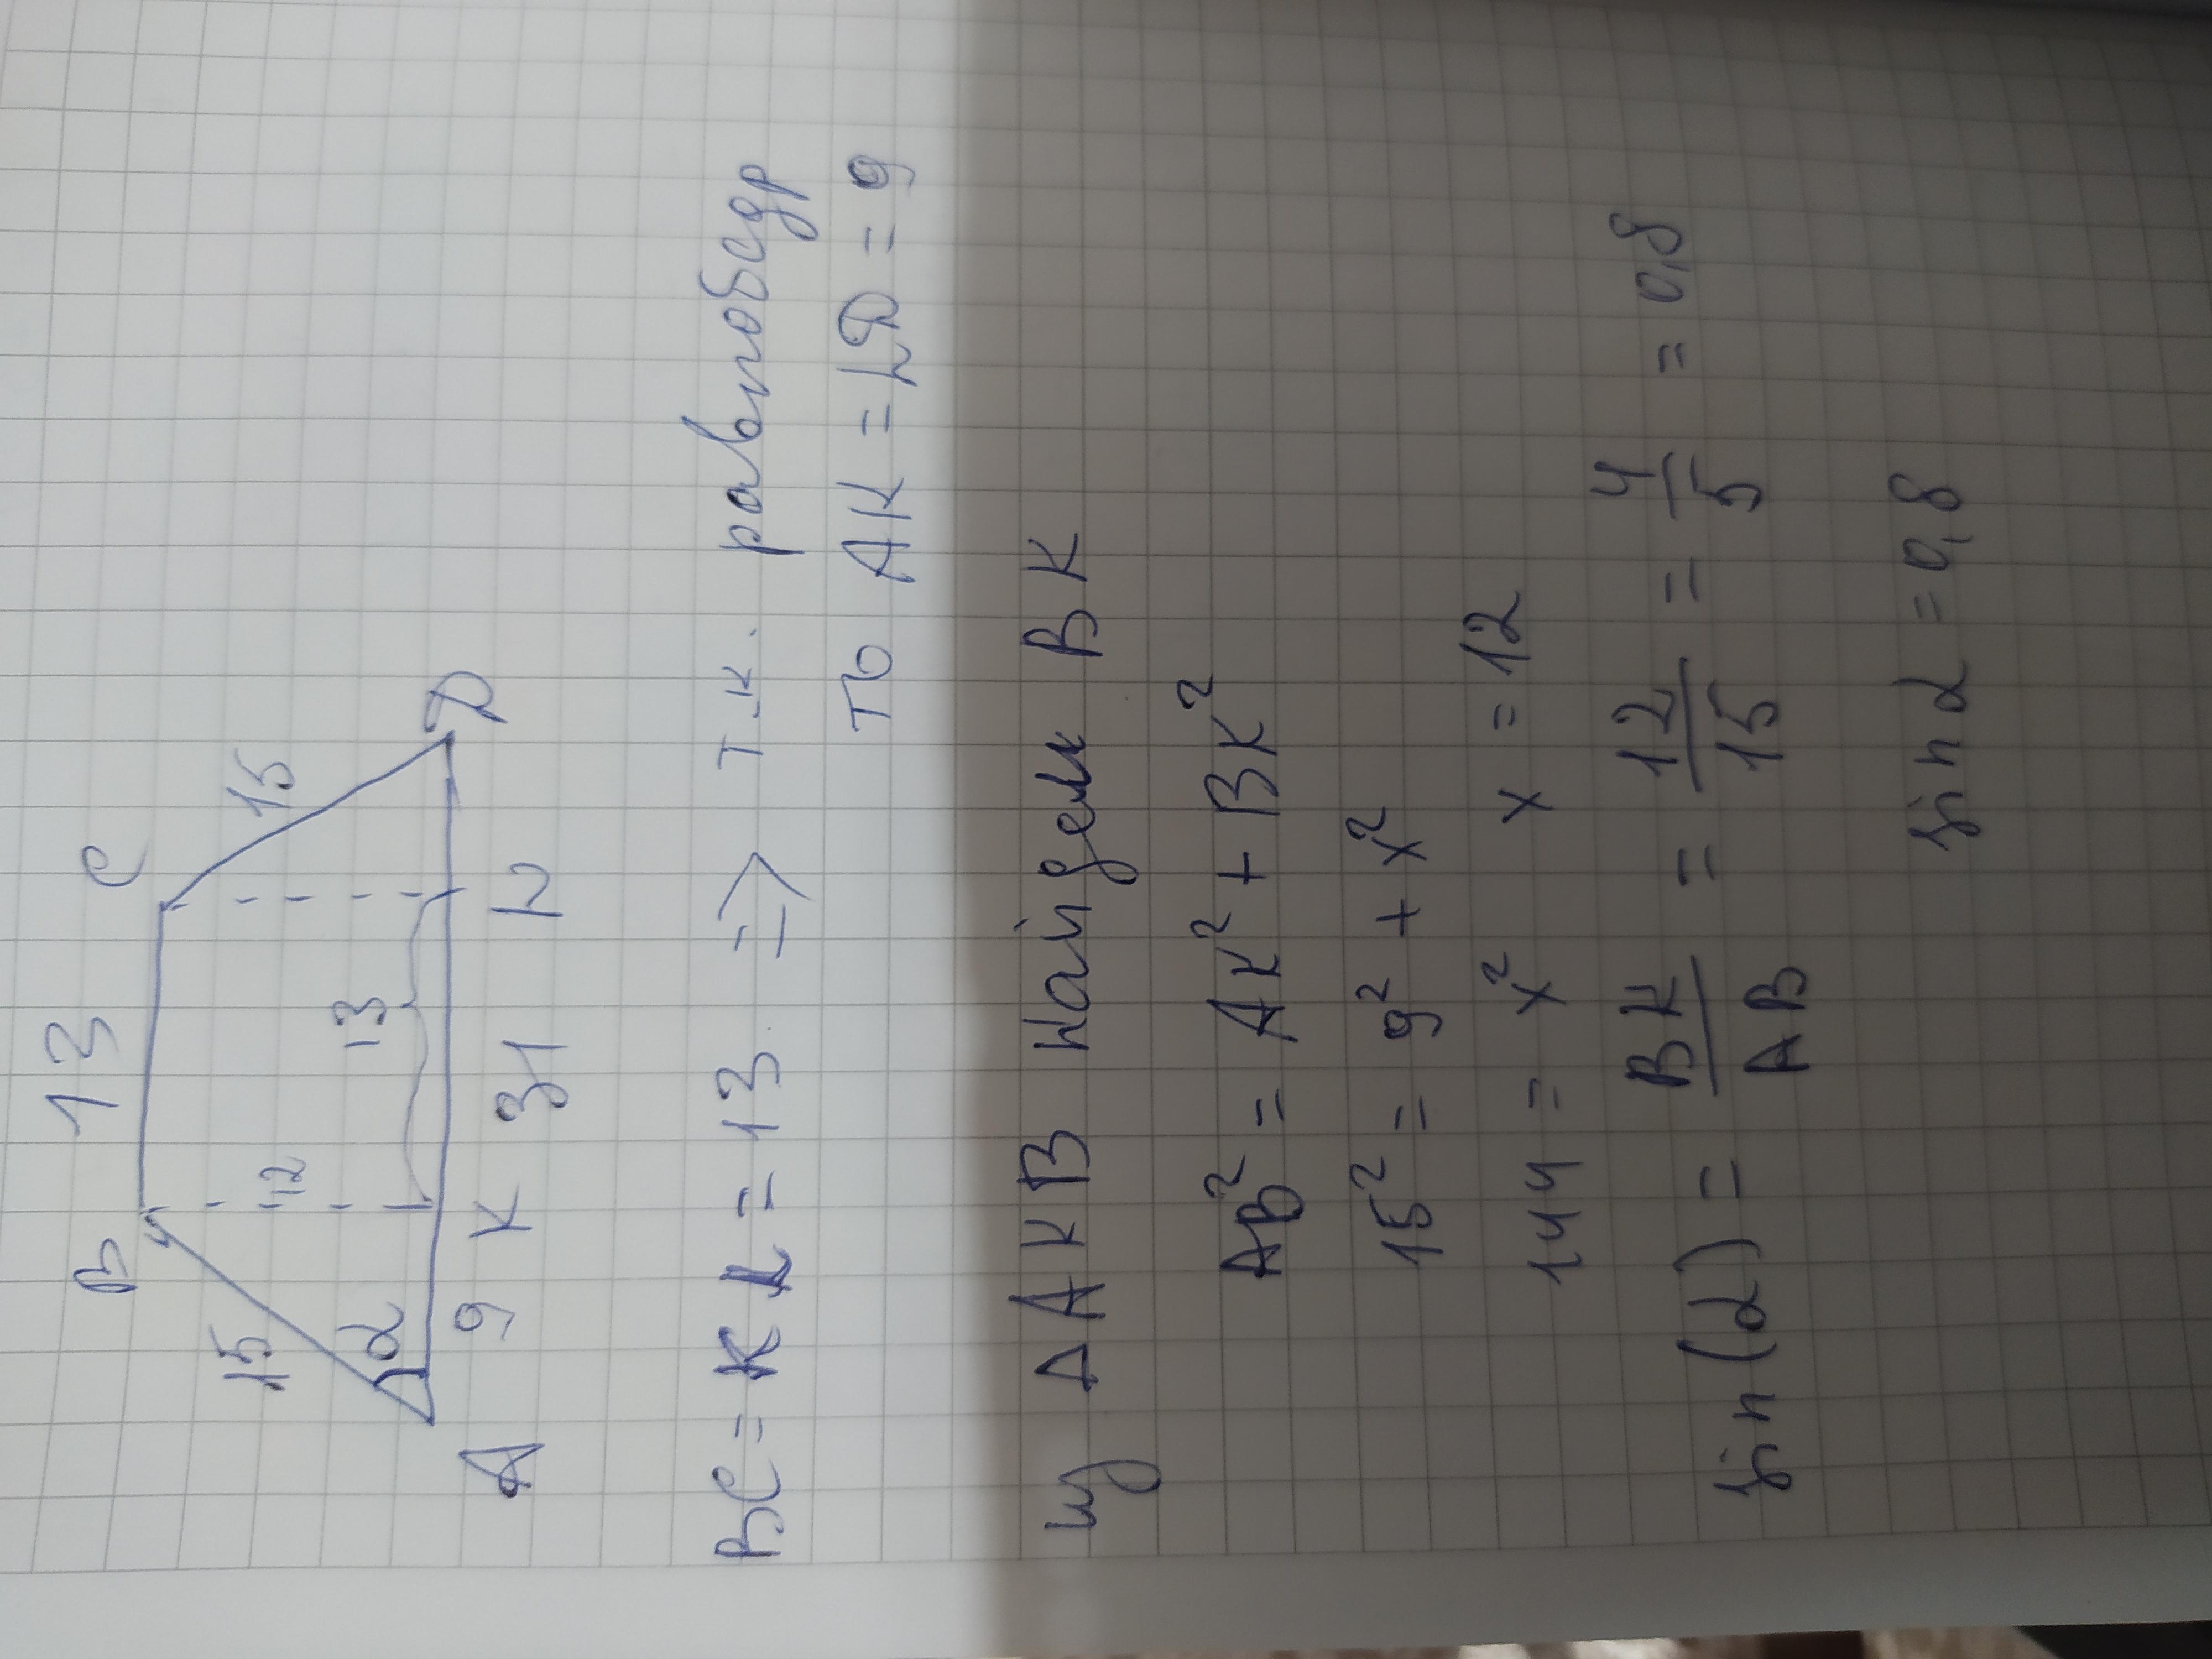 13
B C
15 12 13 15
α
A 9 K 31 L D
BC = KL = 13 => т.к. равнобедр
то AK = LD = 9
из ΔAKB найдем BK
AB² = AK² + BK²
15² = 9² + x²
144 = x² x = 12
sin(α) = BK/AB = 12/15 = 4/5 = 0,8
sin α = 0,8